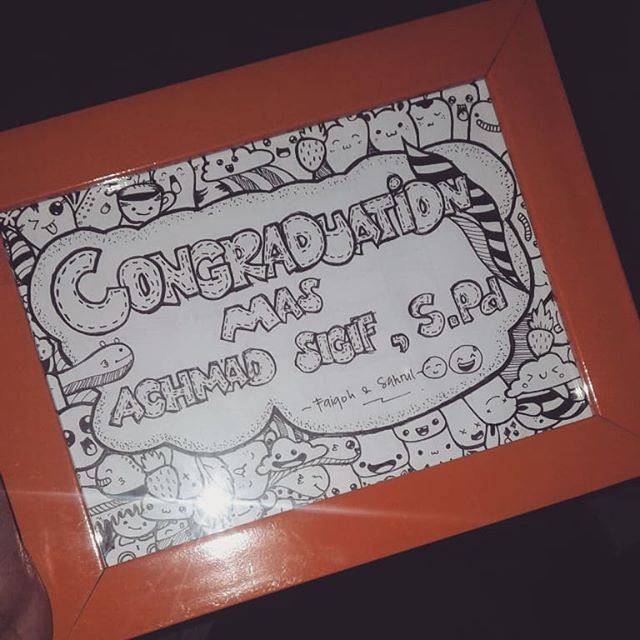 CONGRADUATION
MAS
ACHMAD SIGIF, S.Pd
~Faiqoh & Sahrul~